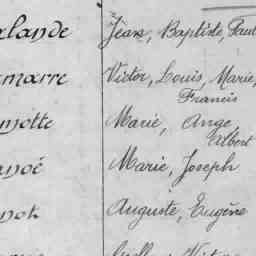 lande Jean, Baptiste, Paul
marre Victor, Louis, Marie,
Francis
motte Marie, Ange
Albert
noë Marie, Joseph
not Auguste, Eugène